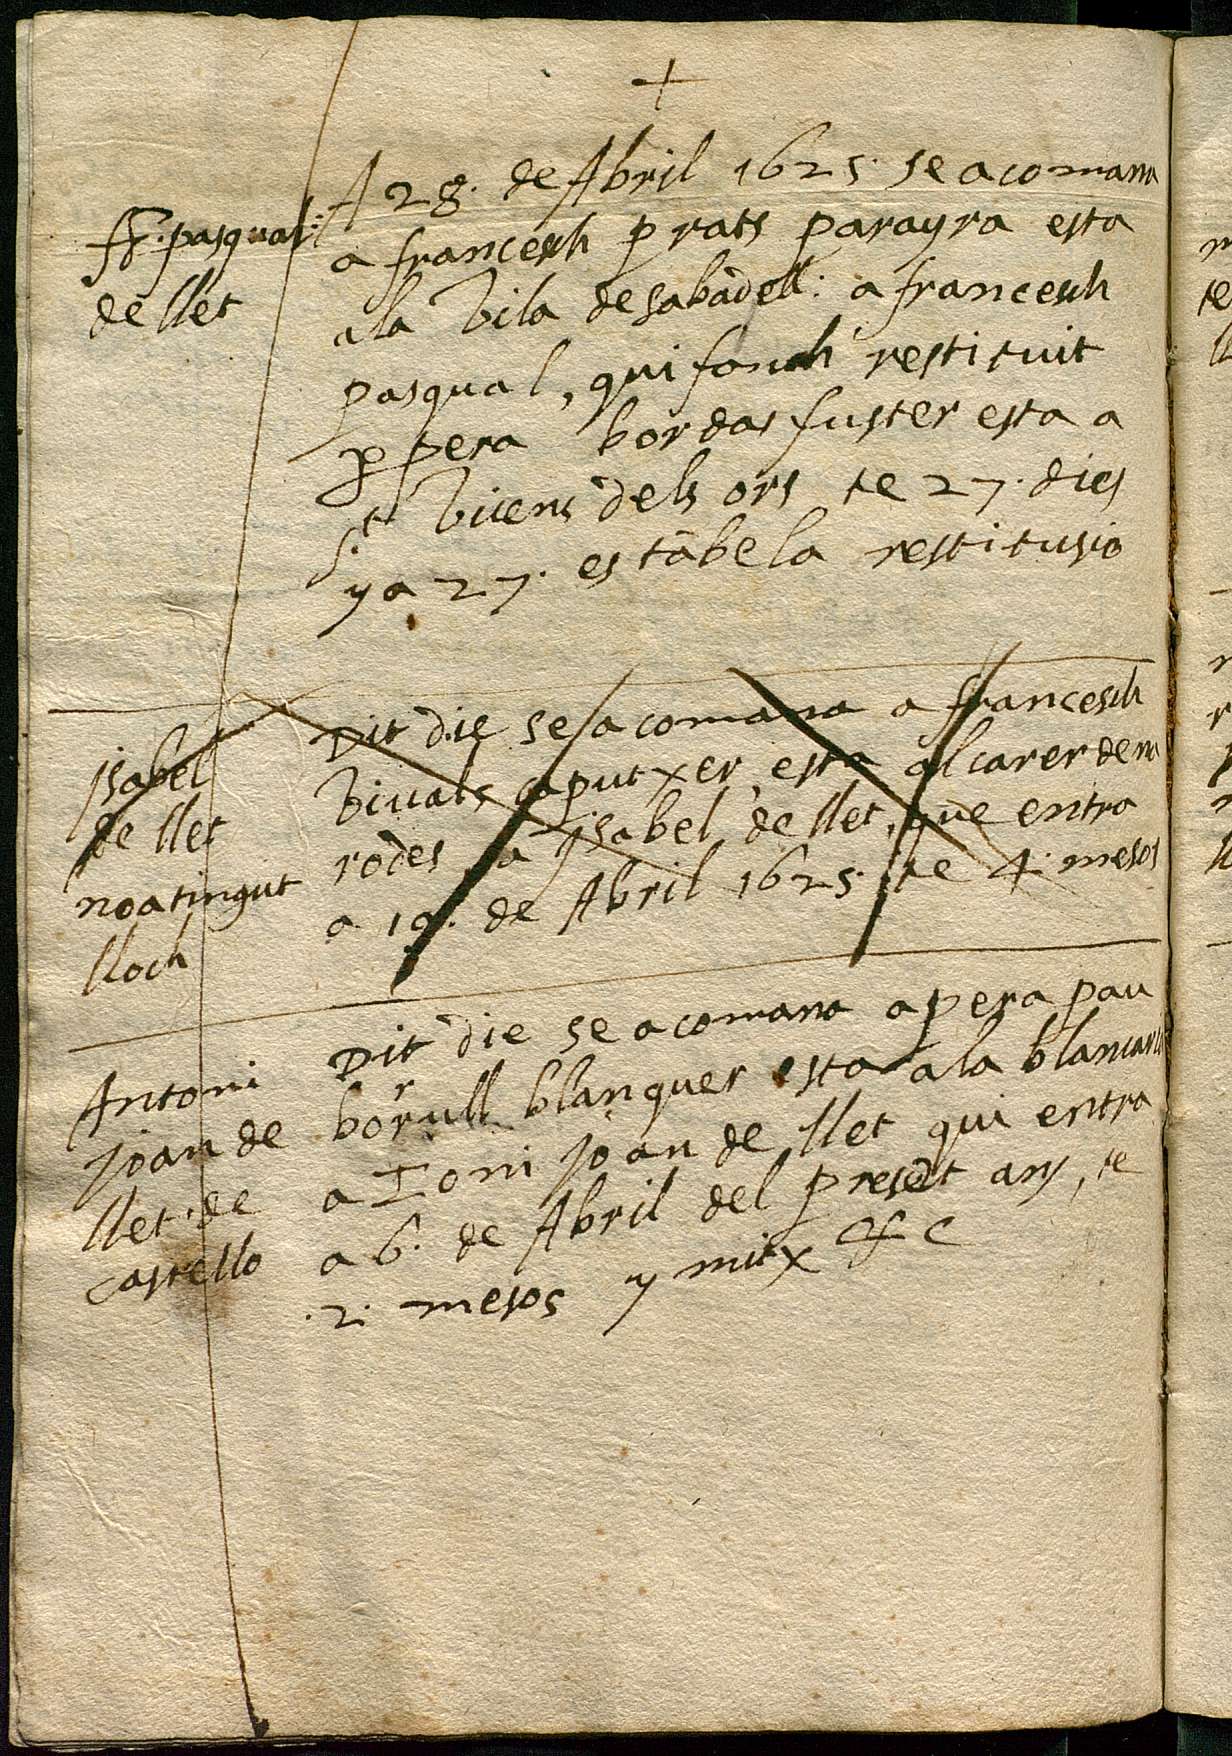 +
ff. pasqual:
de llet
A 28. de Abril 1625. se acomana
a francesch prats parayra esta
a la vila de sabadell: a francesch
pasqual, qui fonch restituit
p pera bordas fuster esta a
St. vicens dels ors te 27. dies
y a 27. es tabe la restitusio
Isabel
de llet
no a tingut
lloch
Dit die se acomana a francesch
vivals caputxer esta al carer den
rodes, a Isabel de llet, que entra
a 19. de Abril 1625. te 4. mesos
Antoni
Joan de
llet. de
castello
Dit die se acomana a pera pau
borrull blanquer esta a la blancaria
a Toni Joan de llet qui entra
a 6. de Abril del present any, te
.2. mesos y mitx &c